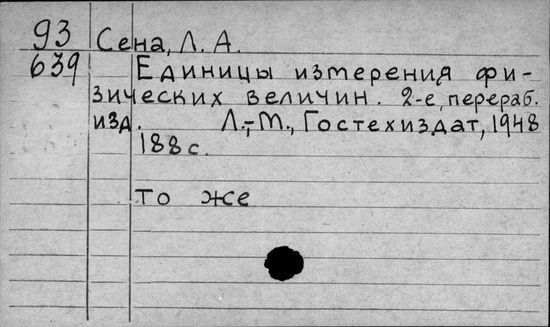 93 Сена, Л. А.
639 Единицы измерения фи-
зических величин. 2-е, перераб.
изд. Л.-М., Гостехиздат, 1948
188 с.
То же